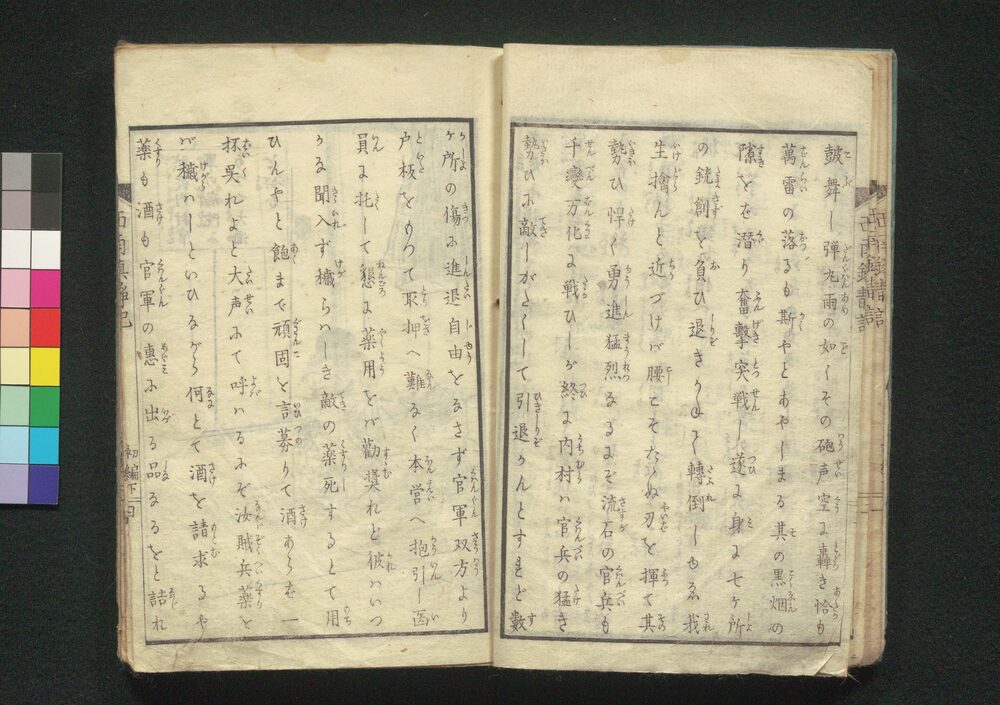 鼓舞し弾丸雨の如くその砲声空に轟き恰も
萬雷の落るも斯やとあやしまる其の黒烟の
隙をを潜り奮撃突戦し遂に身に七ヶ所
の銃創を負ひ退きかねて轉倒しもゐ我
生擒んと近づけば腰こそたゝぬ刃を揮て其
勢ひ悍く勇進猛烈なるにぞ流石の官兵も
千變万化に戦ひしが終に内村ハ官兵の猛き
勢ひに敵しがたくして引退かんとすれど數
ヶ所の傷に進退自由をなさず官軍双方より
戸板をもつて取押へ難なく本営へ抱引し医
員に托して懇に薬用をば勸奨れど彼ハいつ
かな聞入ず穢らハしき敵の薬死するとて用
ひんやと飽まで頑固を言募りて酒あらを一
杯呉れよと大声にて呼ハるにぞ汝賊兵薬を
バ穢ハしといひながら何とて酒を請求るや
薬も酒も官軍の惠に出る品なるをと詰れ
初編下